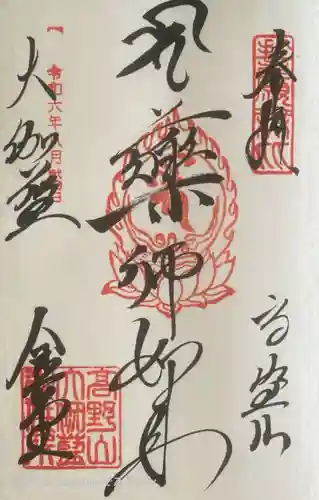 奉拝
高野山
薬師如来
大伽藍
金堂
令和六年八月弐四日
高野山
大伽藍